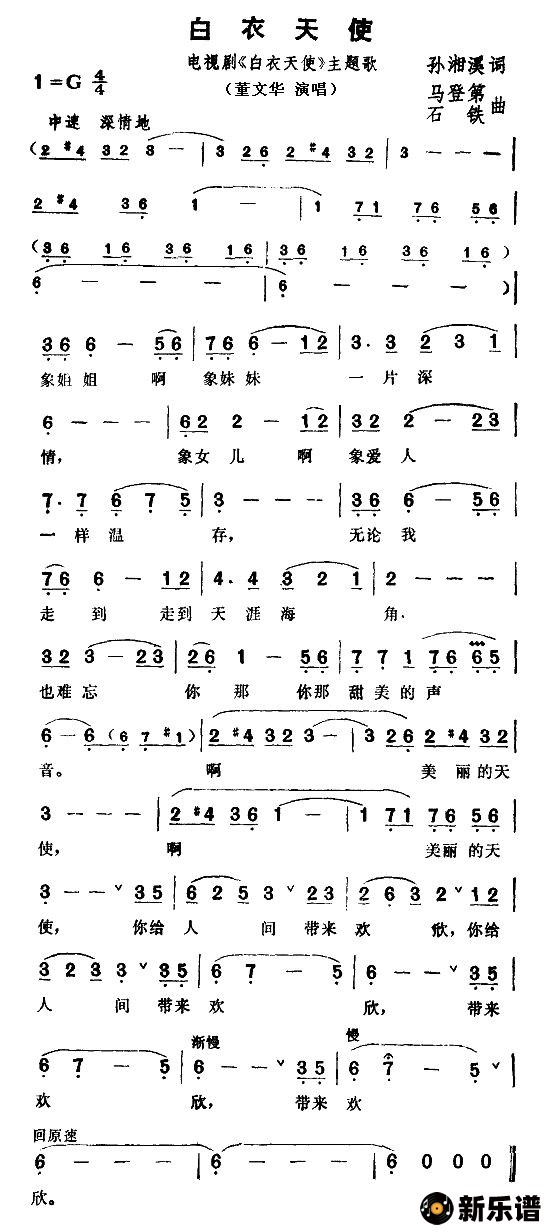 白衣天使
电视剧《白衣天使》主题歌
孙湘溪 词
1=G 4/4
(董文华 演唱)
马登第
石铁 曲
中速 深情地
(2 #4 3 2 3 — | 3 3 2 6 2 #4 3 2 | 3 — — — |
2 #4 3 6 1 — | 1 7 1 7 6 5 6 |
(3 6 1 6 3 6 1 6 | 3 6 1 6 3 6 1 6 )
6 — — — | 6 — — — ) |
3 6 6 — 5 6 | 7 6 6 — 1 2 | 3 · 3 2 3 1 |
象姐姐 啊 象妹妹 一片深
6 — — — | 6 2 2 — 1 2 | 3 2 2 — 2 3 |
情, 象女儿 啊 象爱人
7 · 7 6 7 5 | 3 — — — | 3 6 6 — 5 6 |
一样温 存, 无论我
7 6 6 — 1 2 | 4 · 4 3 2 1 | 2 — — — |
走到 走到天涯海 角,
3 2 3 — 2 3 | 2 6 1 — 5 6 | 7 7 1 7 6 6 5 |
也难忘 你那 你那甜美的声
6 — 6 ( 6 7 #1 ) | 2 #4 3 2 3 — | 3 2 6 2 #4 3 2 |
音。 啊 美丽的天
3 — — — | 2 #4 3 6 1 — | 1 7 1 7 6 5 6 |
使, 啊 美丽的天
3 — — ∨ 3 5 | 6 2 5 3 ∨ 2 3 | 2 6 3 2 ∨ 1 2 |
使, 你给人 间带来欢 欣, 你给
3 2 3 3 ∨ 3 5 | 6 7 — 5 | 6 — — ∨ 3 5 |
人 间带来欢 欣, 带来
渐慢 慢
6 7 — 5 | 6 — — ∨ 3 5 | 6 7 — 5 |
欢 欣, 带来欢
回原速
6 — — — | 6 — — — | 6 — — — | 6 0 0 0 ‖
欣。
新乐谱